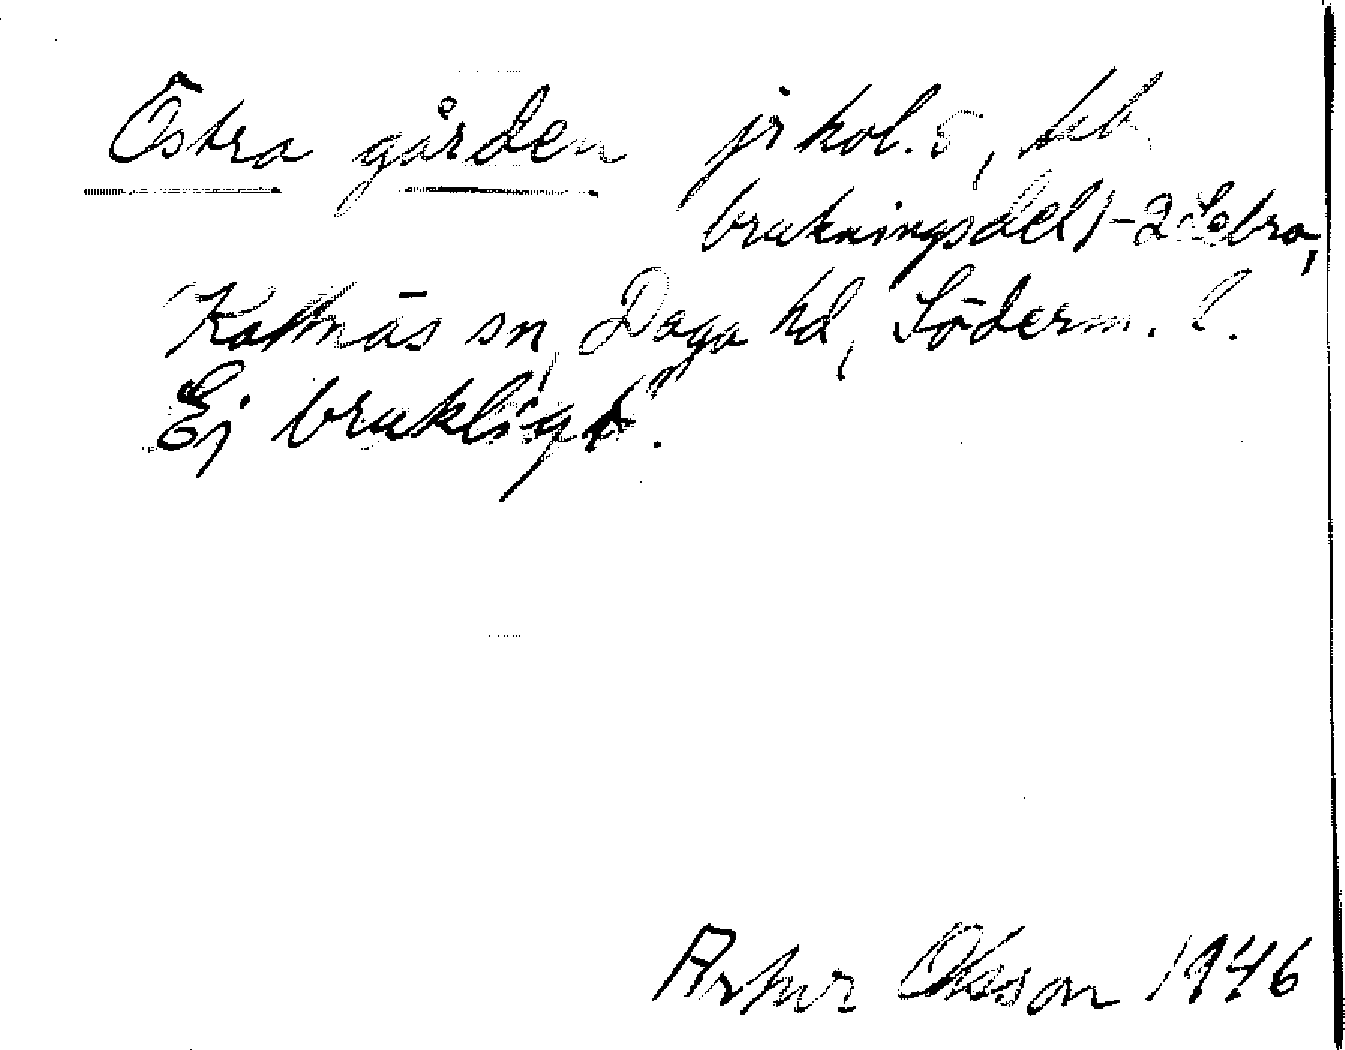 Östra gården jrkol. 5, hb.
brukningsdel 1-2 Lebro,
Kattnäs sn, Daga hd, Söderm. l.
Ej brukligt.
Artur Olsson 1946